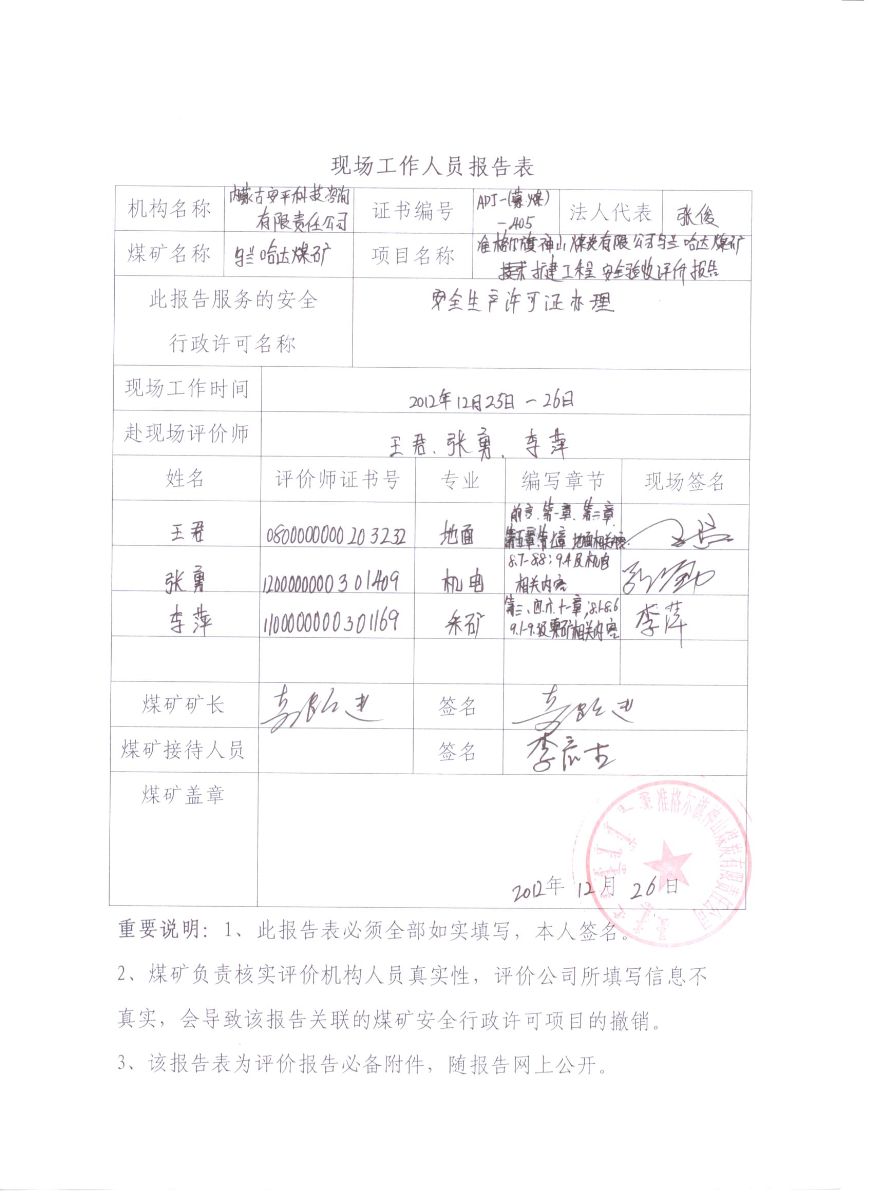 现场工作人员报告表
机构名称 内蒙古安平科技咨询有限责任公司 证书编号 APJ-(蒙煤)-405 法人代表 张俊
煤矿名称 乌兰哈达煤矿 项目名称 准格尔旗神山煤炭有限公司乌兰哈达煤矿
技术扩建工程安全验收评价报告
此报告服务的安全 安全生产许可证办理
行政许可名称
现场工作时间 2012年12月25日-26日
赴现场评价师 王君、张勇、李萍
姓名 评价师证书号 专业 编写章节 现场签名
王君 0800000000203232 地面 前言、第一章、第二章、 王君
张勇 1200000000301409 机电 8.7-8.8;9.4及机电相关内容 张勇
李萍 1100000000301169 采矿 李萍
煤矿矿长 签名
煤矿接待人员 签名
煤矿盖章
2012年12月26日
重要说明：1、此报告表必须全部如实填写，本人签名。
2、煤矿负责核实评价机构人员真实性，评价公司所填写信息不
真实，会导致该报告关联的煤矿安全行政许可项目的撤销。
3、该报告表为评价报告必备附件，随报告网上公开。